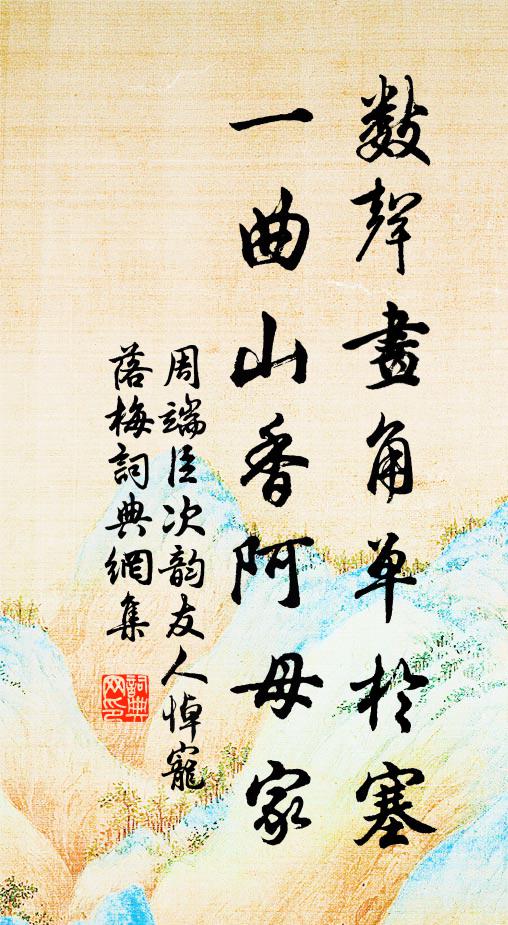 數聲畫角單於塞
一曲山香阿母家
周端臣次韵友人悼寵
落梅詞典網集
詞典网印